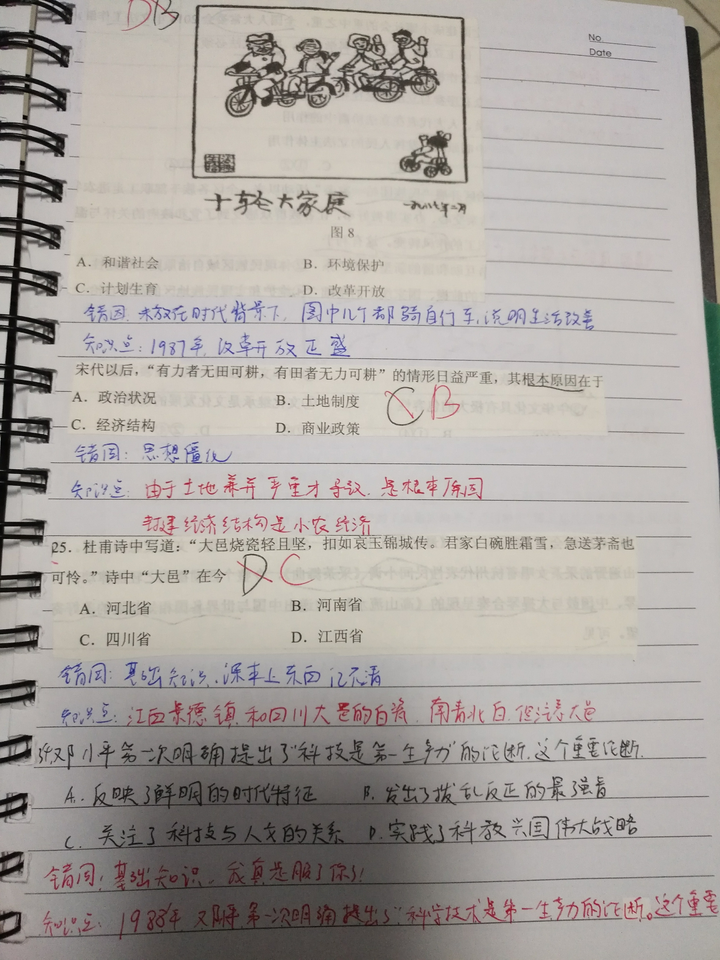 DB
No.
Date
十轻大家庭
一九八七年二月
图 8
A．和谐社会 B．环境保护
C．计划生育 D．改革开放
错因：未放在时代背景下，图中几个都骑自行车，说明生活改善
知识点：1987年，改革开放正盛
宋代以后，“有力者无田可耕，有田者无力可耕”的情形日益严重，其根本原因在于
A．政治状况 B．土地制度 C B
C．经济结构 D．商业政策
错因：思想僵化
知识点：由于土地兼并严重才导致，是根本原因
封建经济结构是小农经济
25．杜甫诗中写道：“大邑烧瓷轻且坚，扣如哀玉锦城传。君家白碗胜霜雪，急送茅斋也
可怜。”诗中“大邑”在今 D C
A．河北省 B．河南省
C．四川省 D．江西省
错因：基础知识，课本上东西记不清
知识点：江西景德镇和四川大邑的白瓷，南青北白，但注意大邑
邓小平第一次明确提出了“科技是第一生产力”的论断，这个重要论断
A．反映了鲜明的时代特征 B．发出了拨乱反正的最强音
C．关注了科技与人文的关系 D．实践了科教兴国伟大战略
错因：基础知识，我真是服了你了！
知识点：1988年邓小平第一次明确提出了“科学技术是第一生产力的论断。这个重要